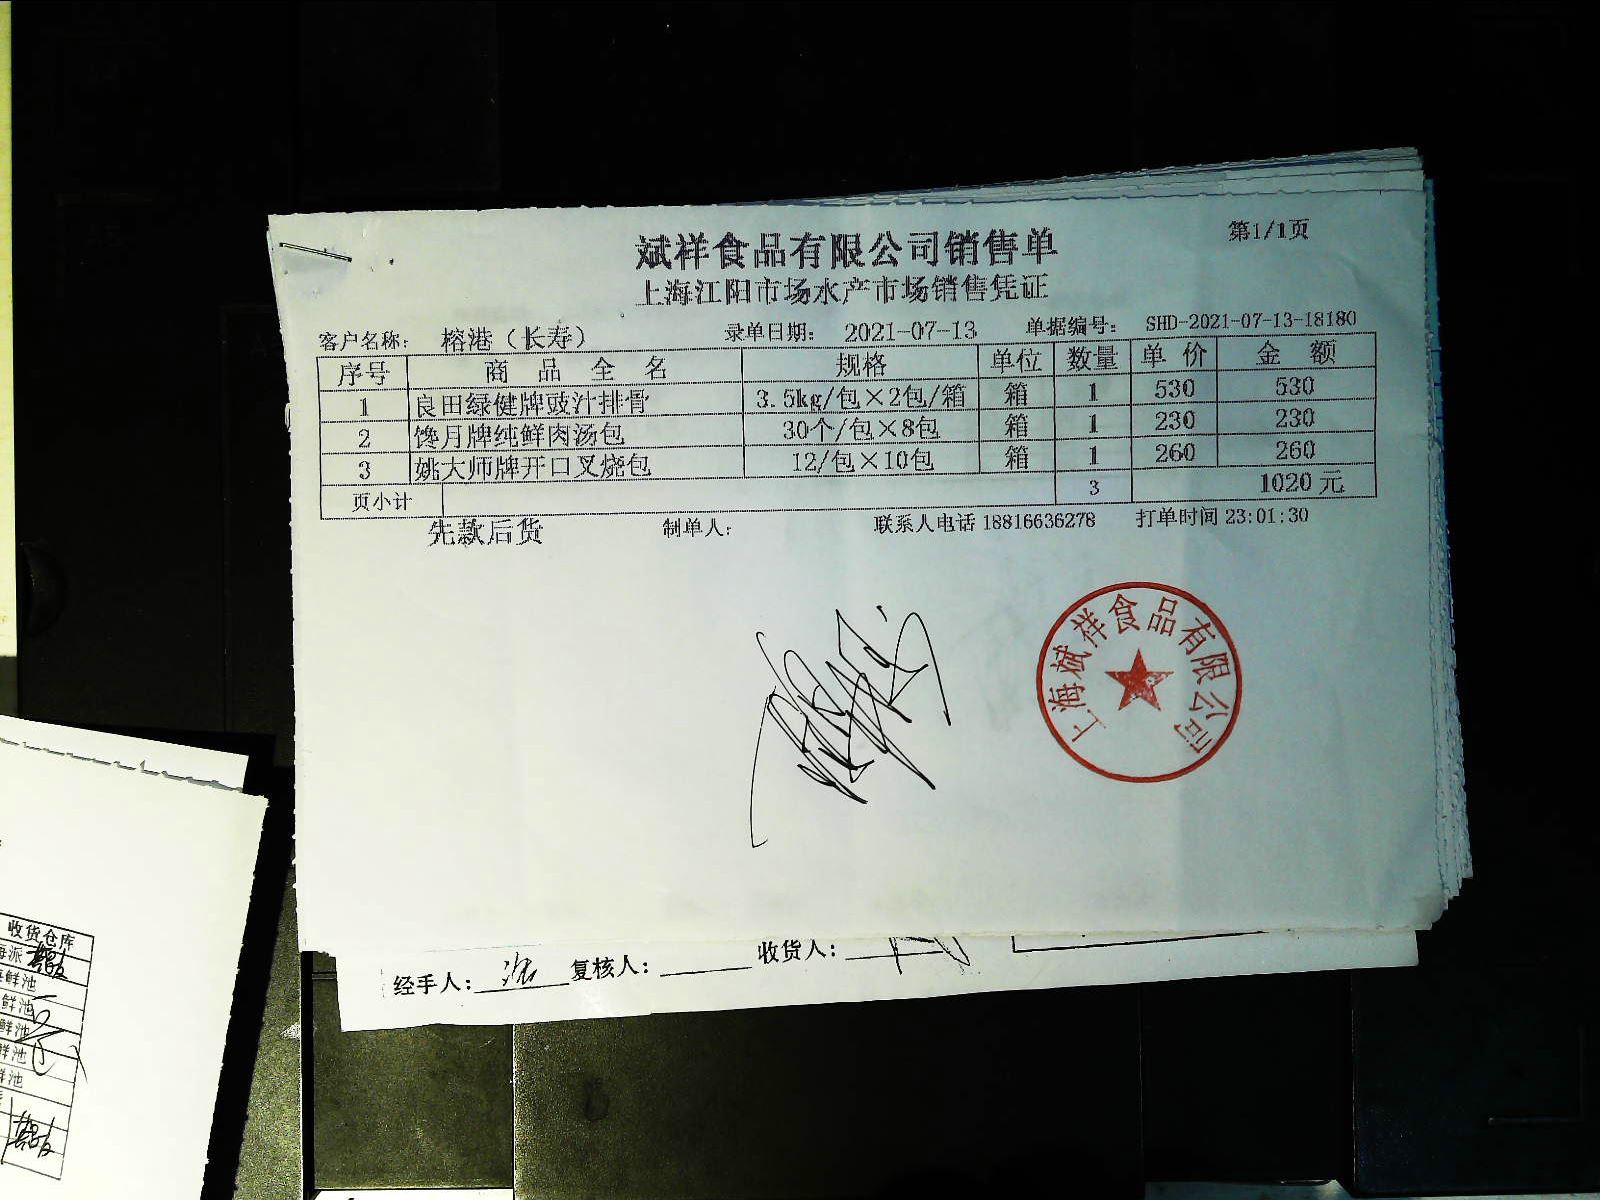 第1/1页
斌祥食品有限公司销售单
上海江阳市场水产市场销售凭证
客户名称： 榕港（长寿） 录单日期： 2021-07-13 单据编号： SHD-2021-07-13-18180
序号 商品全名 规格 单位 数量 单价 金额
1 良田绿健牌豉汁排骨 3.5kg/包×2包/箱 箱 1 530 530
2 馋月牌纯鲜肉汤包 30个/包×8包 箱 1 230 230
3 姚大师牌开口叉烧包 12/包×10包 箱 1 260 260
页小计 3 1020 元
先款后货 制单人： 联系人电话 18816636278 打单时间 23:01:30
上海斌祥食品有限公司
经手人： 复核人： 收货人：
收货仓库
海派
海鲜池
鲜池
鲜池
鲜池
鲜池